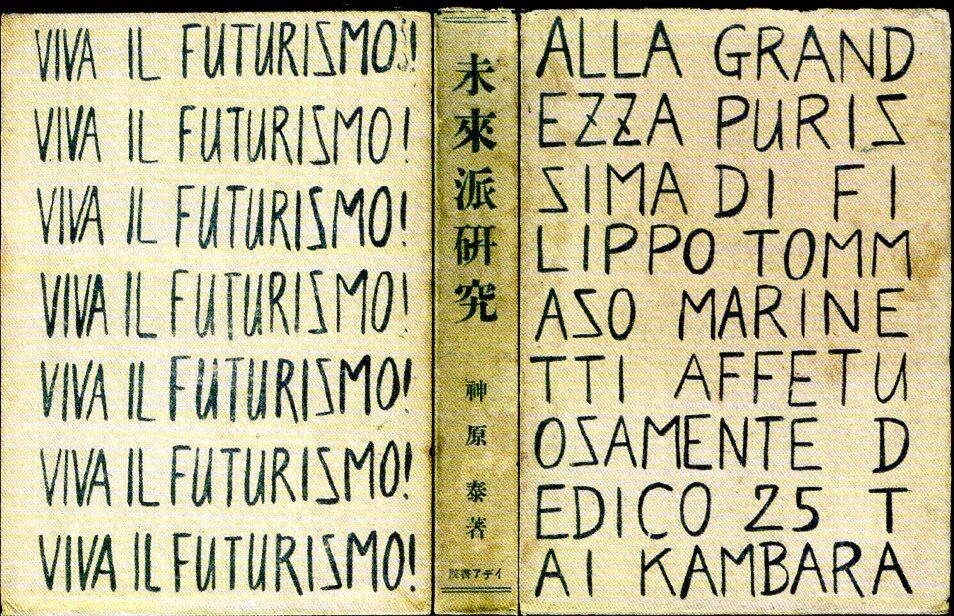 VIVA IL FUTURISMO!
VIVA IL FUTURISMO!
VIVA IL FUTURISMO!
VIVA IL FUTURISMO!
VIVA IL FUTURISMO!
VIVA IL FUTURISMO!
VIVA IL FUTURISMO!
未來派研究
神原泰著
イデア書院
ALLA GRAND
EZZA PURIS
SIMA DI FI
LIPPO TOMM
ASO MARINE
TTI AFFETU
OSAMENTE D
EDICO 25 T
AI KAMBARA